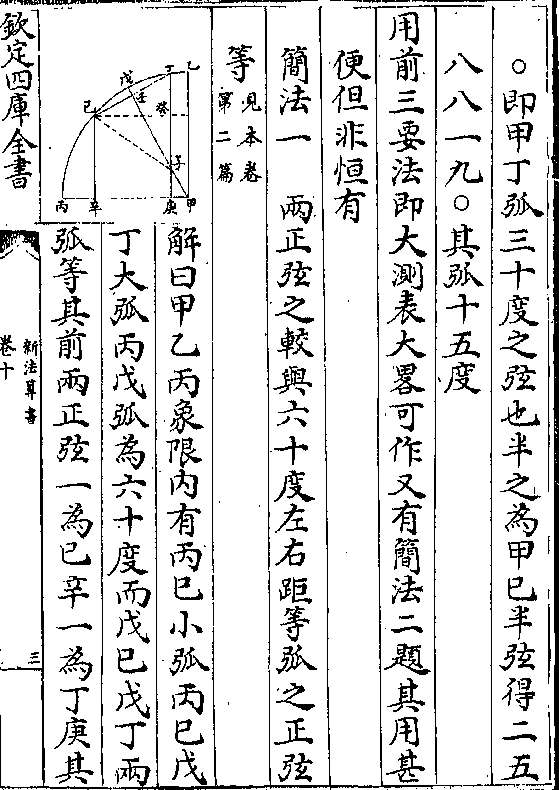 ○即甲丁弧三十度之弦也半之為甲已半弦得二五
八八一九○其弧十五度
用前三要法即大測表大畧可作又有簡法二題其用甚
便但非恒有
簡法一　兩正弦之較與六十度左右距等弧之正弦
等見本卷第二篇
解曰甲乙丙象限內有丙巳小弧丙巳戊
丁大弧丙戊弧為六十度而戊巳戊丁兩
弧等其前兩正弦一為巳辛一為丁庚其
乙
丁
戊
壬
癸
巳
子
甲
庚
辛
丙
欽定四庫全書
新法算書
卷十
三